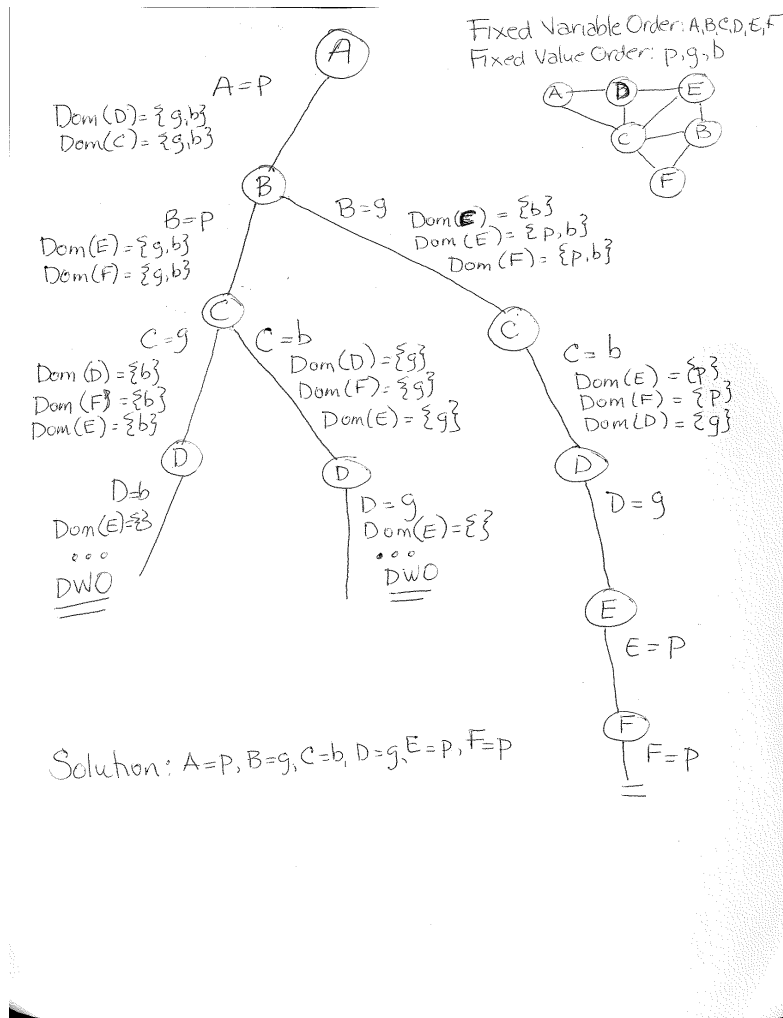 Fixed Variable Order: A,B,C,D,E,F
Fixed Value Order: p,g,b
A
D
E
C
B
F
A
A=p
Dom(D)={g,b}
Dom(C)={g,b}
B
B=p
Dom(E)={g,b}
Dom(F)={g,b}
B=g
Dom(C)={b}
Dom(E)={p,b}
Dom(F)={p,b}
C
C=g
Dom(D)={b}
Dom(F)={b}
Dom(E)={b}
C=b
Dom(D)={g}
Dom(F)={g}
Dom(E)={g}
C
C=b
Dom(E)={p}
Dom(F)={p}
Dom(D)={g}
D
D=b
Dom(E)={}
...
DWO
D
D=g
Dom(E)={}
...
DWO
D
D=g
E
E=p
F
F=p
Solution: A=p, B=g, C=b, D=g, E=p, F=p